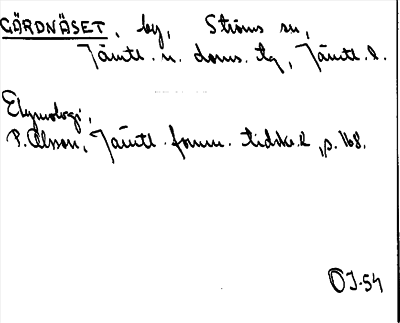 GÄRDNÄSET, by, Ströms sn,
Jämtl. n. doms. tg, Jämtl. l.
Etymologi,
P. Olsson, Jämtl. fornm. tidskr. 2, p. 168.
OJ-54